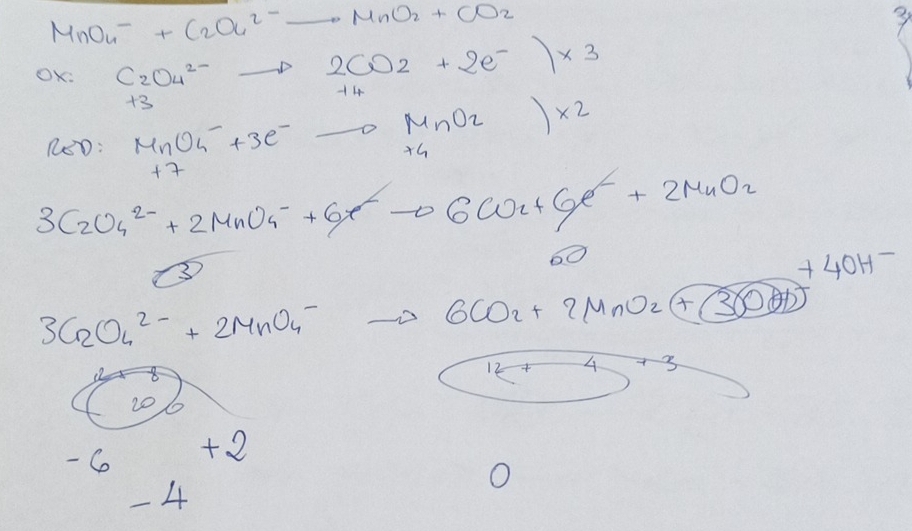 MnO₄⁻ + C₂O₄²⁻ → MnO₂ + CO₂
OX: C₂O₄²⁻ → 2CO₂ + 2e⁻ ) × 3
+3 +4
RED: MnO₄⁻ + 3e⁻ → MnO₂ ) × 2
+7 +4
3C₂O₄²⁻ + 2MnO₄⁻ + 6e⁻ → 6CO₂ + 6e⁻ + 2MnO₂
+ 4OH⁻
3C₂O₄²⁻ + 2MnO₄⁻ → 6CO₂ + 2MnO₂ + 3OH⁻
12 + 8 12 + 4 + 3
20
-6 +2
-4 0